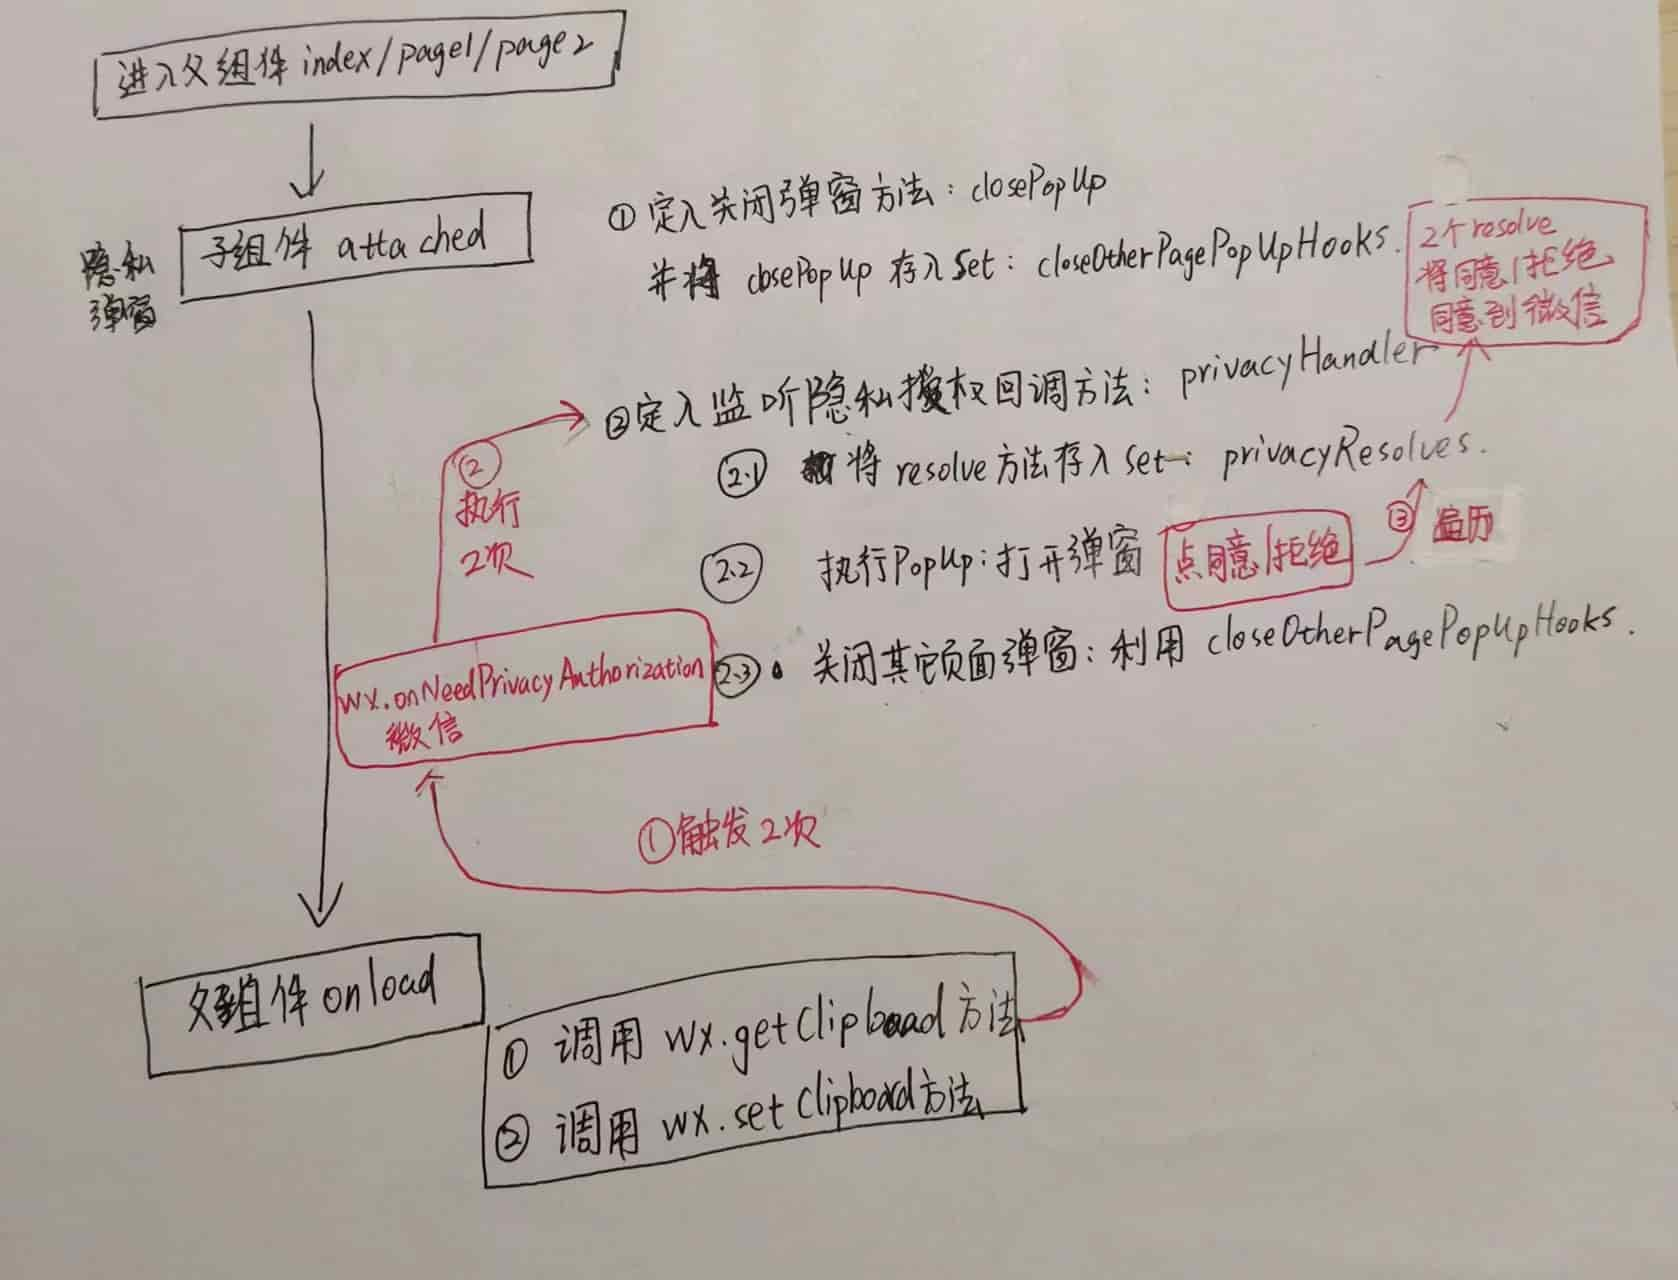 进入父组件 index/page1/page2
隐私
弹窗
子组件 attached
① 定入关闭弹窗方法：closePopUp
并将 closePopUp 存入 Set：closeOtherPagePopUpHooks.
2个resolve
将同意/拒绝
同意到微信
②定入监听隐私授权回调方法：privacyHandler
2.1 将 resolve 方法存入 set：privacyResolves.
②
执行
2次
2.2 执行PopUp：打开弹窗 点同意/拒绝 ③ 遍历
2.3 关闭其它页面弹窗：利用 closeOtherPagePopUpHooks.
wx.onNeedPrivacyAuthorization
微信
①触发2次
父组件 onload
① 调用 wx.getClipboard方法
② 调用 wx.setClipboard方法